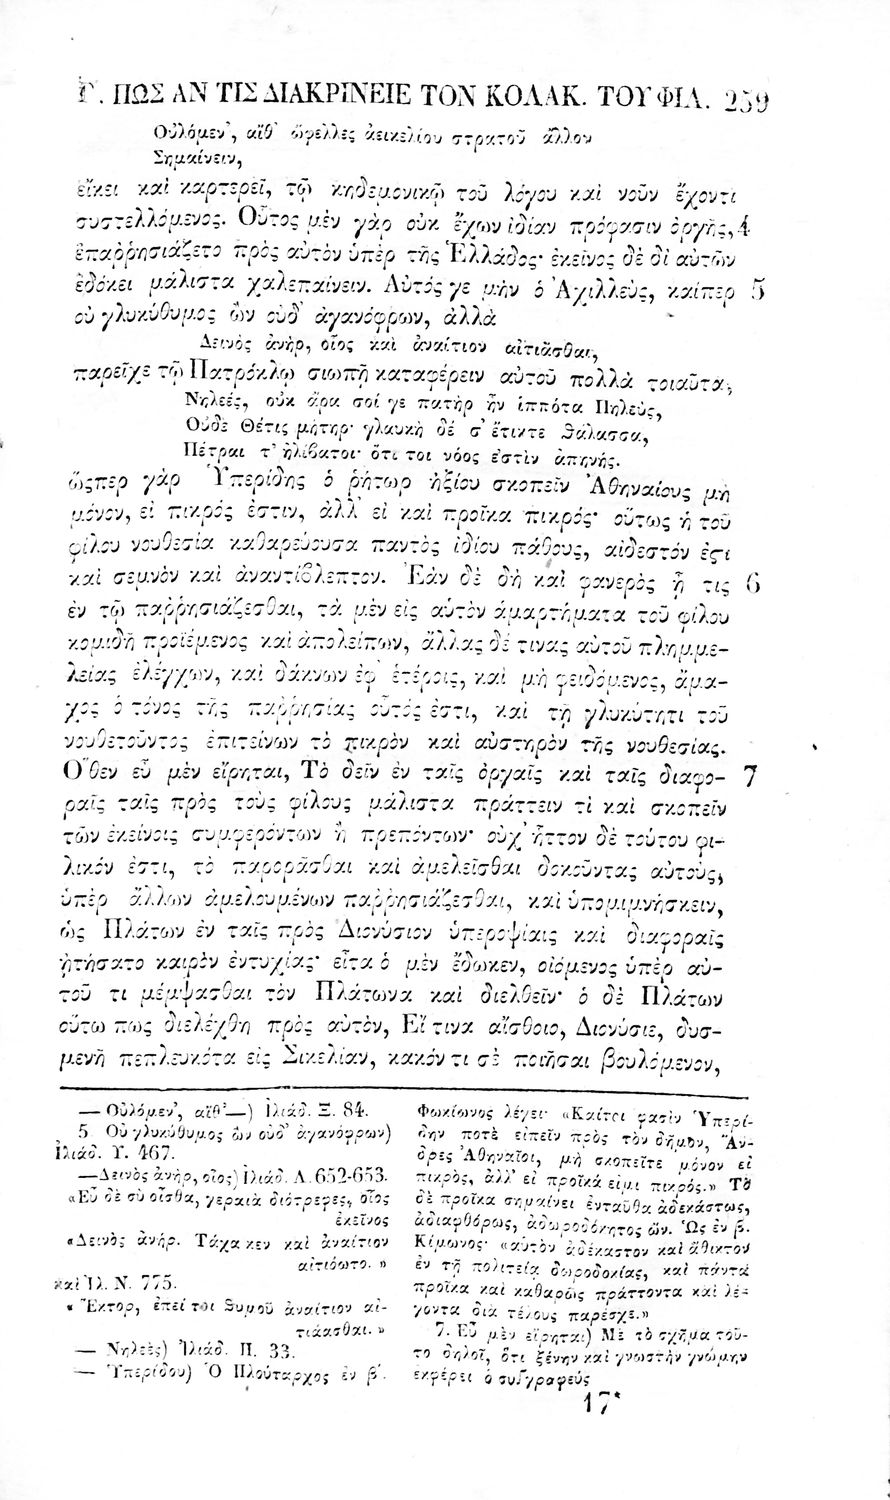 Γ'. ΠΩΣ ΑΝ ΤΙΣ ΔΙΑΚΡΙΝΕΙΕ ΤΟΝ ΚΟΛΑΚ. ΤΟΥ ΦΙΛ. 259
Οὐλόμεν', αἴθ' ὤφελλες ἀεικελίου στρατοῦ ἄλλου
Σημαίνειν,
εἴκει καὶ καρτερεῖ, τῷ κηδεμονικῷ τοῦ λόγου καὶ νοῦν ἔχοντι
συστελλόμενος. Οὗτος μὲν γὰρ οὐκ ἔχων ἰδίαν πρόφασιν ὀργῆς, 4
ἐπαῤῥησιάζετο πρὸς αὐτὸν ὑπὲρ τῆς Ἑλλάδος· ἐκεῖνος δὲ δι αὑτῶν
ἐδόκει μάλιστα χαλεπαίνειν. Αὐτός γε μὴν ὁ Ἀχιλλεὺς, καίπερ 5
οὐ γλυκύθυμος ὢν οὐδ' ἀγανόφρων, ἀλλὰ
Δεινὸς ἀνὴρ, οἷος καὶ ἀναίτιον αἰτιᾶσθαι,
παρεῖχε τῷ Πατρόκλῳ σιωπῇ καταφέρειν αὐτοῦ πολλὰ τοιαῦτα,
Νηλεές, οὐκ ἄρα σοί γε πατὴρ ἦν ἱππότα Πηλεὺς,
Οὐδὲ Θέτις μήτηρ· γλαυκὴ δέ σ' ἔτικτε θάλασσα,
Πέτραι τ' ἠλίβατοι· ὅτι τοι νόος ἐστὶν ἀπηνής.
ὥςπερ γὰρ Ὑπερίδης ὁ ῥήτωρ ἠξίου σκοπεῖν Ἀθηναίους μὴ
μόνον, εἰ πικρός ἐστιν, ἀλλ' εἰ καὶ προῖκα πικρός· οὕτως ἡ τοῦ
φίλου νουθεσία καθαρεύουσα παντὸς ἰδίου πάθους, αἰδεστόν ἐστι
καὶ σεμνὸν καὶ ἀναντίβλεπτον. Ἐὰν δὲ δὴ καὶ φανερὸς ᾖ τις 6
ἐν τῷ παῤῥησιάζεσθαι, τὰ μὲν εἰς αὐτὸν ἁμαρτήματα τοῦ φίλου
κομιδῇ προϊέμενος καὶ ἀπολείπων, ἄλλας δέ τινας αὐτοῦ πλημμε-
λείας ἐλέγχων, καὶ δάκνων ἐφ' ἑτέροις, καὶ μὴ φειδόμενος, ἄμα-
χος ὁ τόνος τῆς παῤῥησίας οὗτός ἐστι, καὶ τῇ γλυκύτητι τοῦ
νουθετοῦντος ἐπιτείνων τὸ πικρὸν καὶ αὐστηρὸν τῆς νουθεσίας.
Ὅθεν εὖ μὲν εἴρηται, Τὸ δεῖν ἐν ταῖς ὀργαῖς καὶ ταῖς διαφο- 7
ραῖς ταῖς πρὸς τοὺς φίλους μάλιστα πράττειν τὶ καὶ σκοπεῖν
τῶν ἐκείνοις συμφερόντων ἢ πρεπόντων· οὐχ' ἧττον δὲ τούτου φι-
λικόν ἐστι, τὸ παρορᾶσθαι καὶ ἀμελεῖσθαι δοκοῦντας αὐτοὺς,
ὑπὲρ ἄλλων ἀμελουμένων παῤῥησιάζεσθαι, καὶ ὑπομιμνήσκειν,
ὡς Πλάτων ἐν ταῖς πρὸς Διονύσιον ὑπεροψίαις καὶ διαφοραῖς
ᾐτήσατο καιρὸν ἐντυχίας· εἶτα ὁ μὲν ἔδωκεν, οἰόμενος ὑπὲρ αὑ-
τοῦ τι μέμψασθαι τὸν Πλάτωνα καὶ διελθεῖν· ὁ δὲ Πλάτων
οὕτω πως διελέχθη πρὸς αὐτὸν, Εἴ τινα αἴσθοιο, Διονύσιε, δυσ-
μενῆ πεπλευκότα εἰς Σικελίαν, κακόν τι σὲ ποιῆσαι βουλόμενον,
— Οὐλόμεν', αἴθ'—) Ἰλιάδ. Ξ. 84.
5 Οὐ γλυκύθυμος ὢν οὐδ' ἀγανόφρων)
Ἰλιάδ. Υ. 467.
—Δεινὸς ἀνὴρ, οἷος) Ἰλιάδ. Λ. 652-653.
«Εὖ δὲ σὺ οἶσθα, γεραιὲ διότρεφες, οἷος
ἐκεῖνος
«Δεινὸς ἀνήρ. Τάχα κεν καὶ ἀναίτιον
αἰτιόωτο.»
καὶ Ἰλ. Ν. 775.
« Ἕκτορ, ἐπεί τοι θυμοῦ ἀναίτιον αἰ-
τιάασθαι.»
— Νηλεὲς) Ἰλιάδ. Π. 33.
— Ὑπερίδου) Ὁ Πλούταρχος ἐν β'.
Φωκίωνος λέγει· «Καίτοι φασὶν Ὑπερί-
δην ποτὲ εἰπεῖν πρὸς τὸν δῆμον, Ἄν-
δρες Ἀθηναῖοι, μὴ σκοπεῖτε μόνον εἰ
πικρὸς, ἀλλ' εἰ προῖκά εἰμι πικρός.» Τὸ
δὲ προῖκα σημαίνει ἐνταῦθα ἀδεκάστως,
ἀδιαφθόρως, ἀδωροδόκητος ὤν. Ὡς ἐν β.
Κίμωνος· «αὐτὸν ἀδέκαστον καὶ ἄθικτον
ἐν τῇ πολιτείᾳ δωροδοκίας, καὶ πάντα
προῖκα καὶ καθαρῶς πράττοντα καὶ λέ-
γοντα διὰ τέλους παρέσχε.»
7. Εὖ μὲν εἴρηται) Μὲ τὸ σχῆμα τοῦ-
το δηλοῖ, ὅτι ξένην καὶ γνωστὴν γνώμην
ἐκφέρει ὁ συγγραφεύς
17*